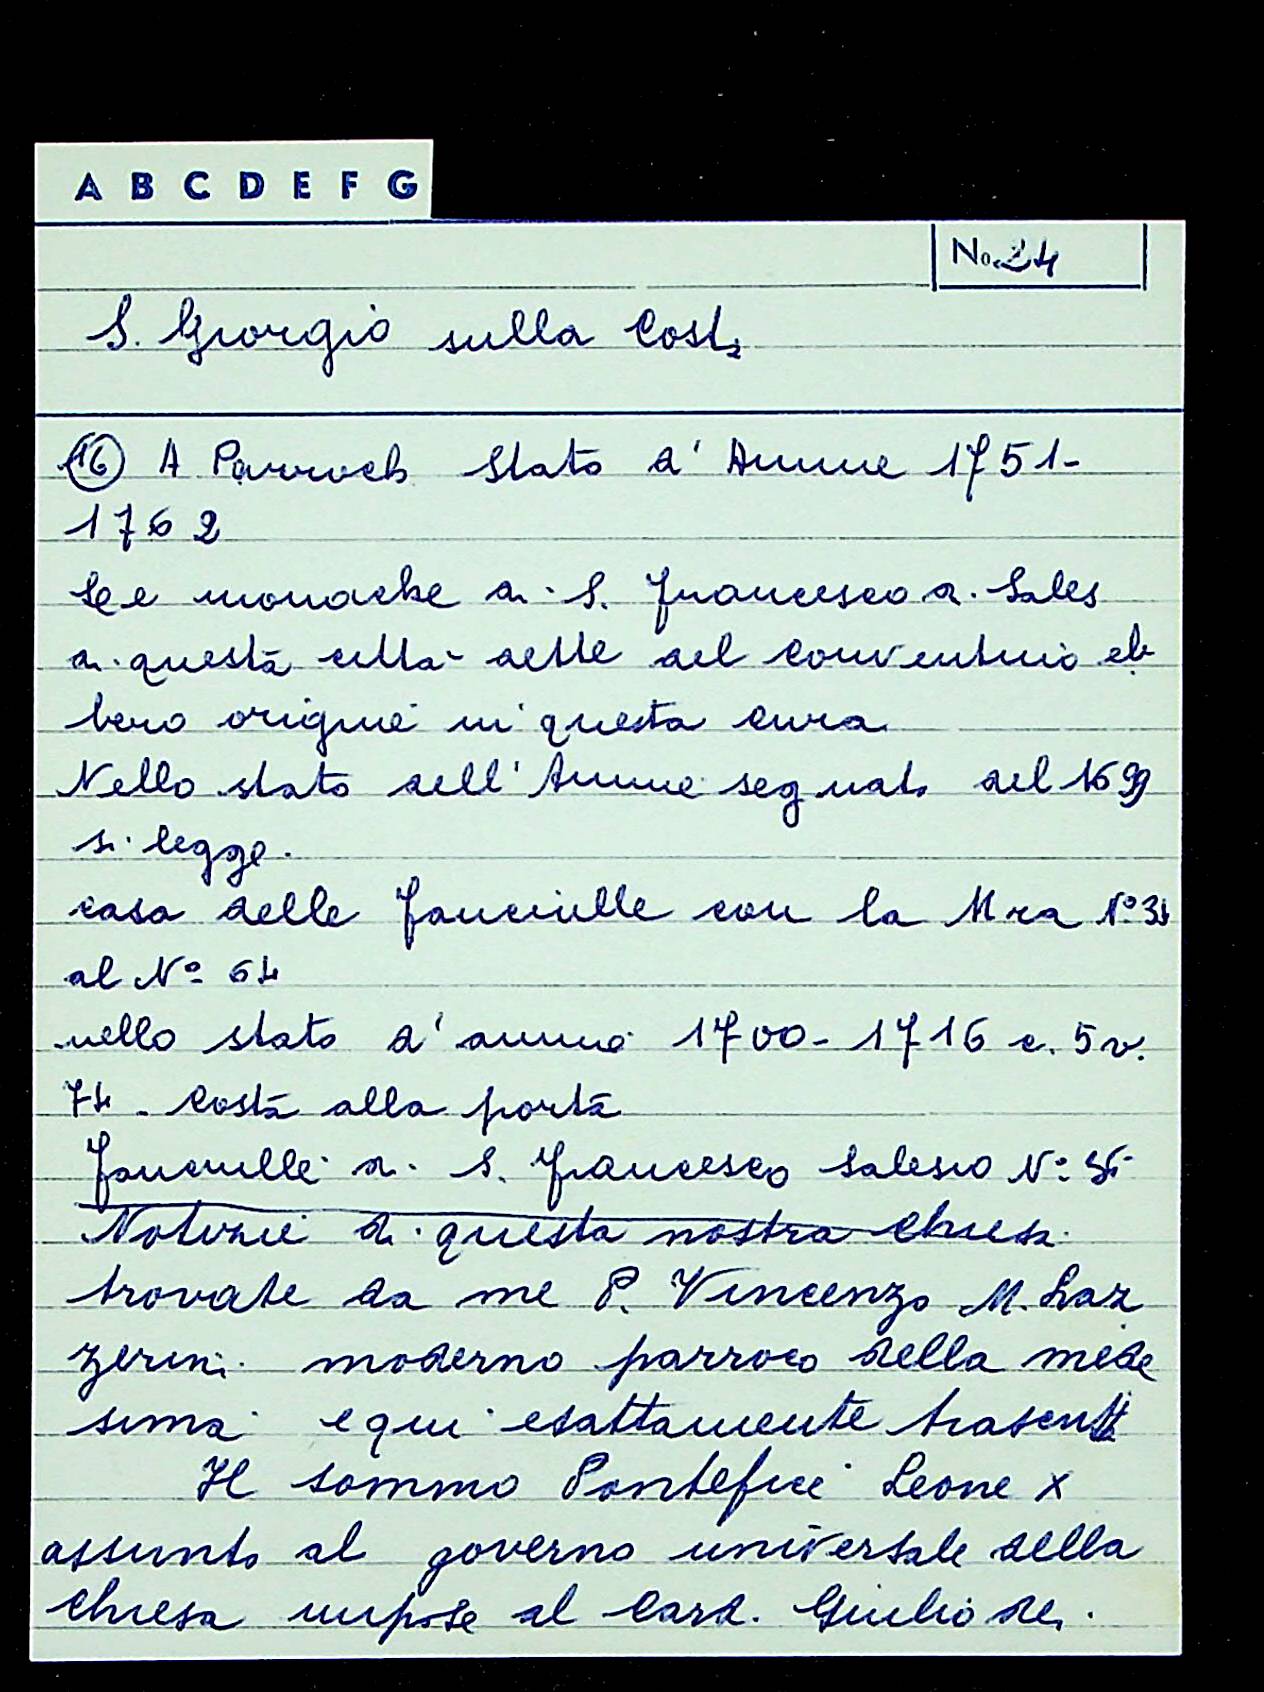 A B C D E F G
No. 24
S. Giorgio sulla Costa
(16) A Parroch Stato d'Anime 1751-
1762
Le monache di S. Francesco di Sales
di questa città dette del Conventino eb
bero origine in questa cura
Nello stato dell'Anime segnato del 1699
si legge.
casa delle fanciulle con la Mra N° 34
al N° 64
nello stato d'anime 1700-1716 c. 5v.
74 - Costa alla porta
fanciulle di S. Francesco Salesio N°
Notizie di questa nostra Chiesa
trovate da me P. Vincenzo M. Laz
zerini moderno parroco della mede
sima e qui esattamente trascritte
Il sommo Pontefice Leone X
assunto al governo universale della
Chiesa impose al Card. Giulio de.